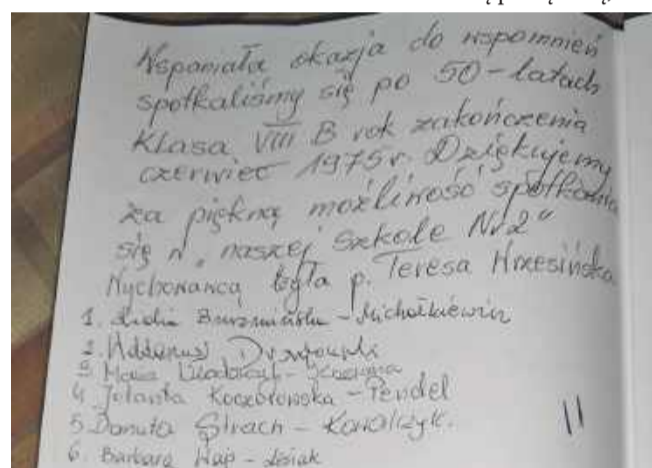 Wspaniała okazja do wspomnień
spotkaliśmy się po 50-latach
Klasa VIII B rok zakończenia
czerwiec 1975 r. Dziękujemy
za piękną możliwość spotkania
się w „naszej Szkole Nr 2"
Wychowawcą była p. Teresa Wrzesińska
1. Lidia - Michałkiewicz
2.
3 Maria
4 Jolanta Koczorowska - Pendel
5. Danuta Strach - Kowalczyk.
6. Barbara - Lesiak